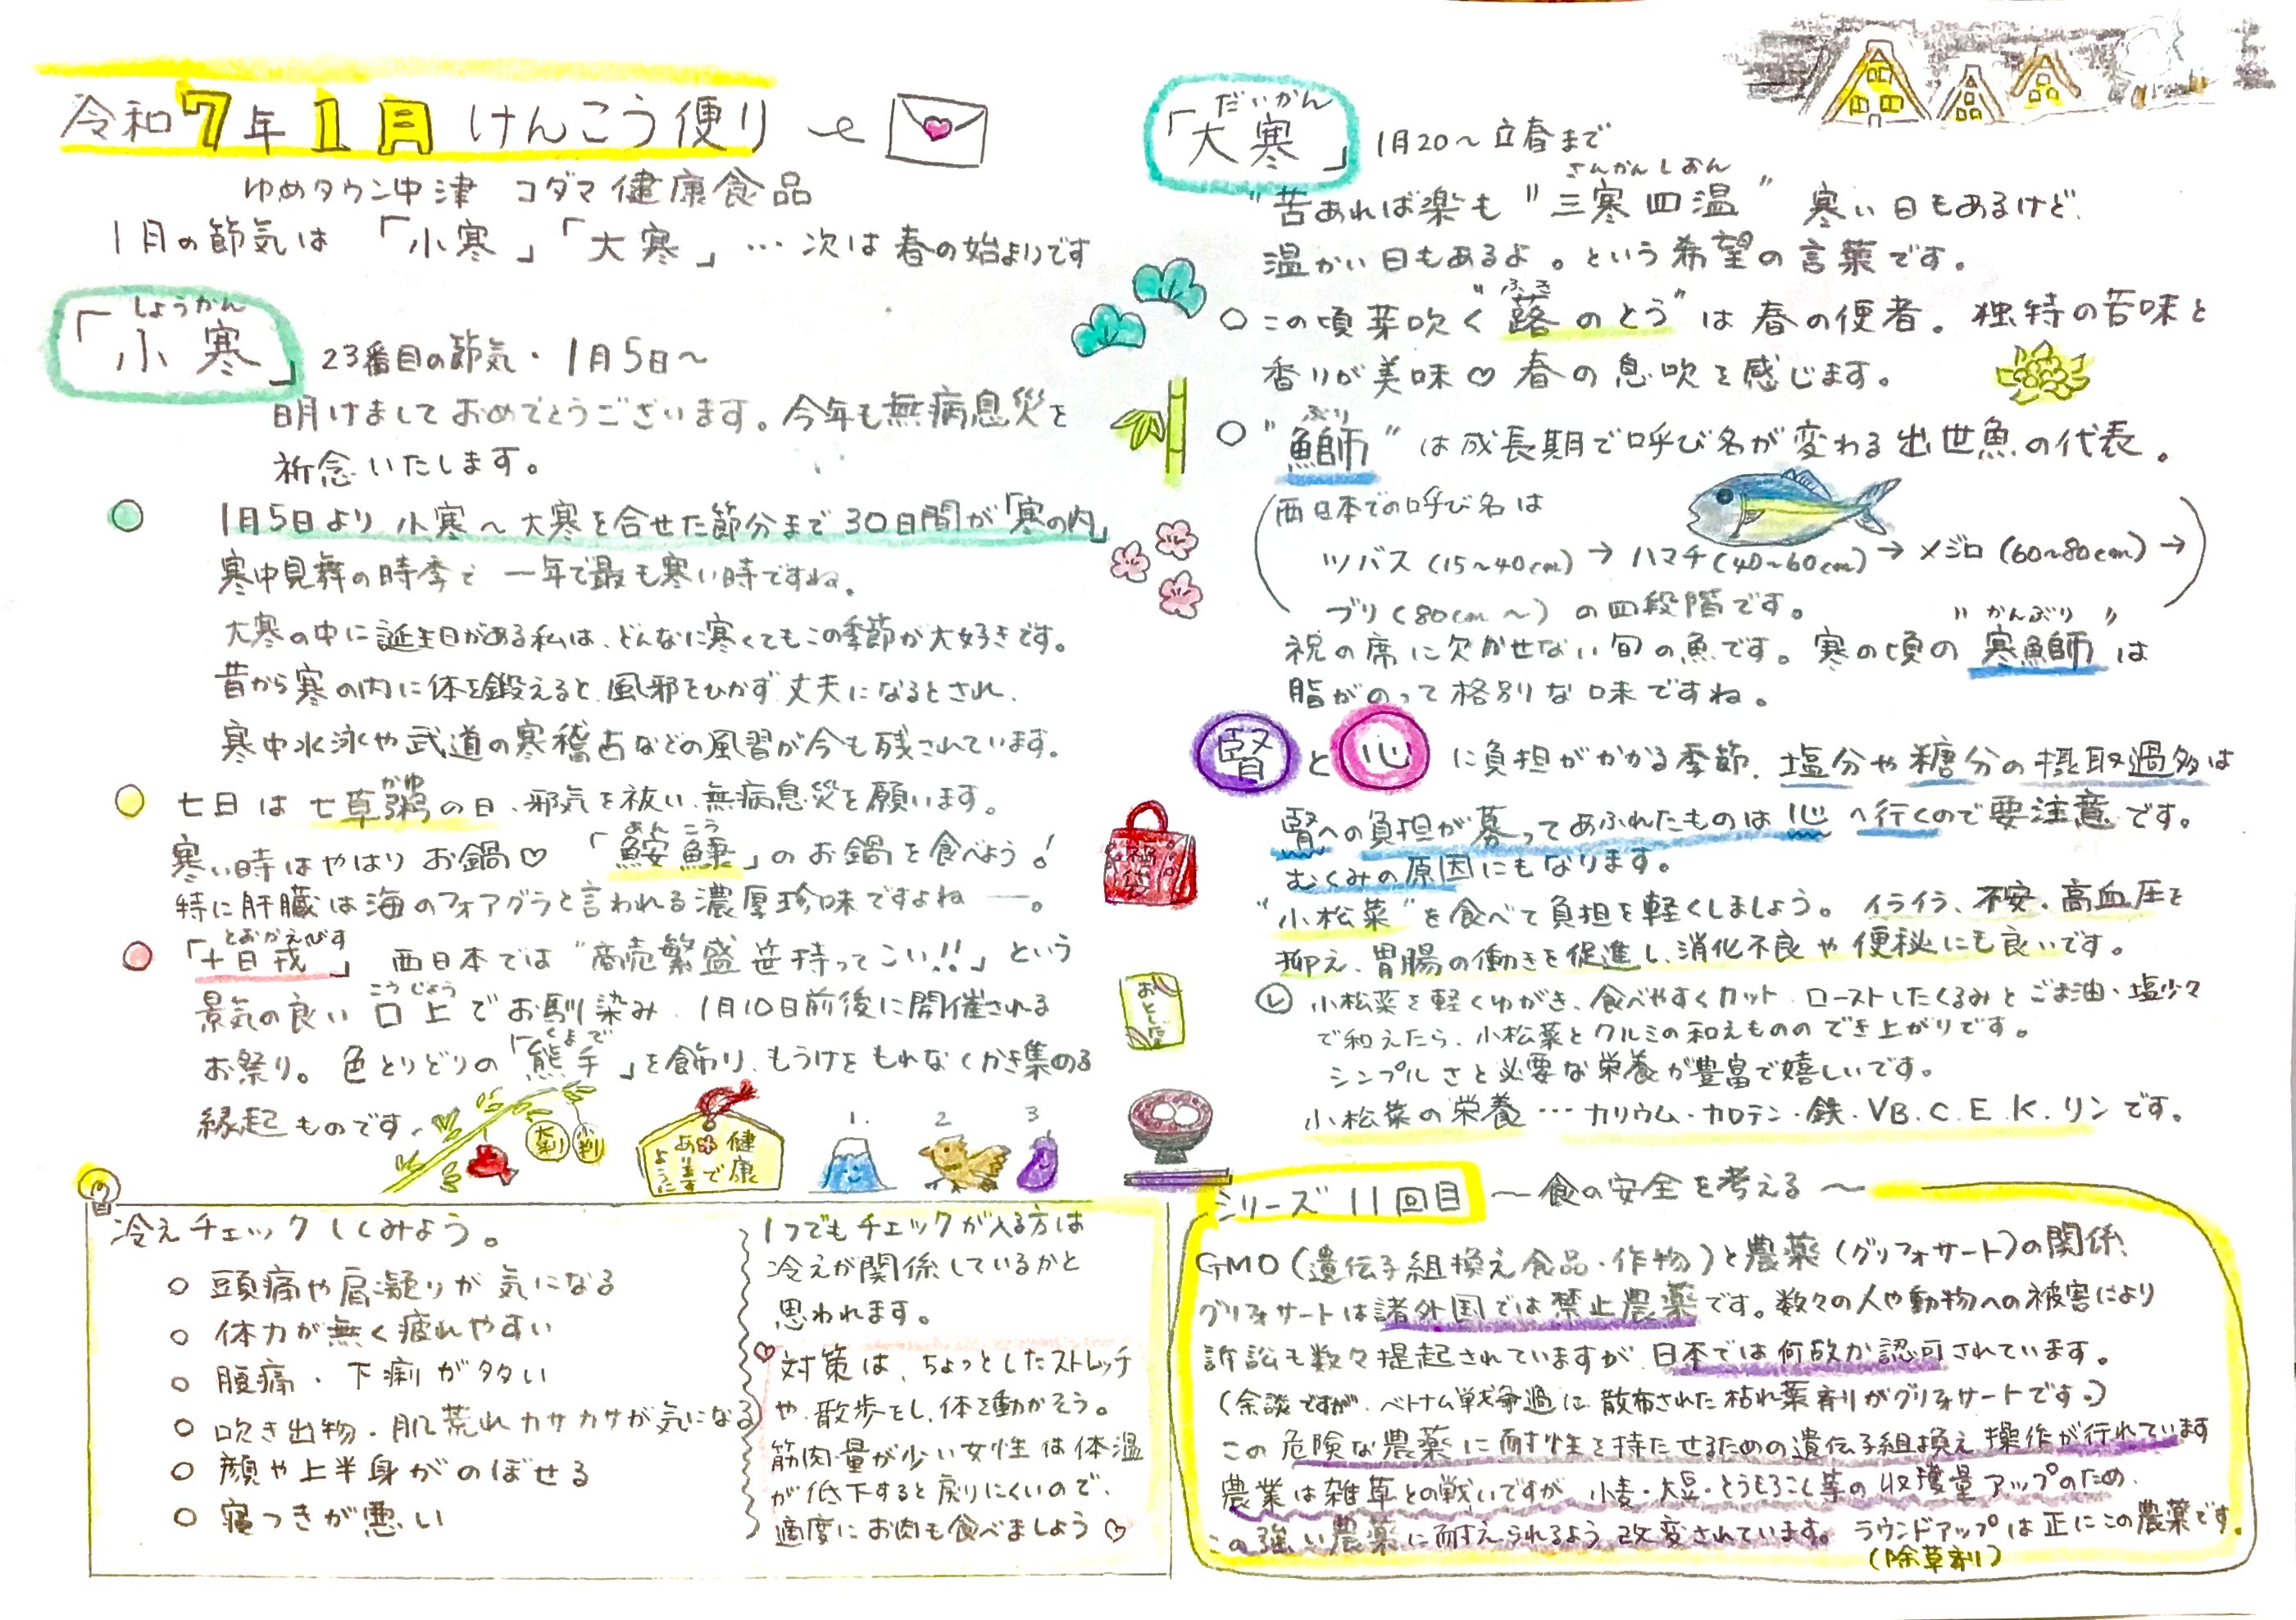 令和7年1月 けんこう便り
ゆめタウン中津 コダマ健康食品
1月の節気は 「小寒」「大寒」… 次は春の始まりです
しょうかん
「小寒」 23番目の節気・1月5日〜
明けましておめでとうございます。今年も無病息災を
祈念いたします。
○ 1月5日より 小寒〜大寒を合せた節分まで30日間が「寒の内」
寒中見舞の時季で 一年で最も寒い時ですね。
大寒の中に誕生日がある私は、どんなに寒くてもこの季節が大好きです。
昔から寒の内に体を鍛えると、風邪をひかず丈夫になるとされ、
寒中水泳や武道の寒稽古などの風習が今も残されています。
かゆ
○ 七日は七草粥の日、邪気を祓い、無病息災を願います。
あんこう
寒い時はやはりお鍋♡ 「鮟鱇」のお鍋を食べよう!
特に肝臓は海のフォアグラと言われる濃厚珍味ですよね―。
とおかえびす
○ 「十日戎」 西日本では“商売繁盛笹持ってこい!!」という
こうじょう
景気の良い口上でお馴染み、1月10日前後に開催される
くまで
お祭り。色とりどりの「熊手」を飾り、もうけをもれなくかき集める
縁起ものです。
大判 小判
健康で
あります
ように
1. 2 3
冷えチェックしてみよう。
○ 頭痛や肩凝りが気になる
○ 体力が無く疲れやすい
○ 腹痛・下痢が多い
○ 吹き出物・肌荒れカサカサが気になる
○ 顔や上半身がのぼせる
○ 寝つきが悪い
1つでもチェックが入る方は
冷えが関係しているかと
思われます。
♡対策は、ちょっとしたストレッチ
や、散歩をし、体を動かそう。
筋肉量が少い女性は体温
が低下すると戻りにくいので、
適度にお肉も食べましょう♡
だいかん
「大寒」 1月20〜立春まで
さんかんしおん
“苦あれば楽も”“三寒四温” 寒い日もあるけど、
温かい日もあるよ。という希望の言葉です。
ふき
○ この頃芽吹く“蕗のとう”は春の使者。独特の苦味と
香りが美味♡春の息吹を感じます。
ぶり
○ “鰤”は成長期で呼び名が変わる出世魚の代表。
西日本での呼び名は
ツバス(15〜40cm)→ハマチ(40〜60cm)→メジロ(60〜80cm)→
ブリ(80cm〜)の四段階です。
“かんぶり”
祝の席に欠かせない旬の魚です。寒の頃の寒鰤は
脂がのって格別な味ですね。
腎と心に負担がかかる季節、塩分や糖分の摂取過多は
腎への負担が募ってあふれたものは心へ行くので要注意です。
むくみの原因にもなります。
“小松菜”を食べて負担を軽くしましょう。イライラ、不安、高血圧を
抑え、胃腸の働きを促進し、消化不良や便秘にも良いです。
小松菜を軽くゆがき、食べやすくカット、ローストしたくるみとごま油・塩少々
で和えたら、小松菜とクルミの和えもののでき上がりです。
シンプルさと必要な栄養が豊富で嬉しいです。
小松菜の栄養…カリウム・カロテン・鉄・VB.C.E.K.リンです。
おとしだま
シリーズ11回目 〜食の安全を考える〜
GMO(遺伝子組換え食品・作物)と農薬(グリフォサート)の関係、
グリフォサートは諸外国では禁止農薬です。数々の人や動物への被害により
訴訟も数々提起されていますが、日本では何故か認可されています。
(余談ですが、ベトナム戦争過に散布された枯れ薬剤がグリフォサートです。)
この危険な農薬に耐性を持たせるための遺伝子組換え操作が行れています
農業は雑草との戦いですが、小麦・大豆・とうもろこし等の収穫量アップのため、
この強い農薬に耐えられるよう改変されています。ラウンドアップは正にこの農薬です。
(除草剤)